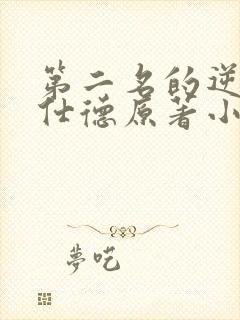 第二名的逆
仕德原著小
夢吃